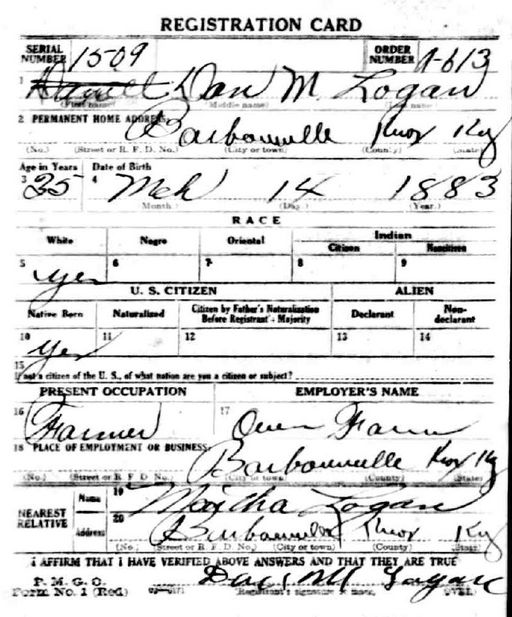 REGISTRATION CARD
SERIAL NUMBER 1509 ORDER NUMBER A-613
1 Dan M. Logan
(First name) (Middle name) (Last name)
2 PERMANENT HOME ADDRESS: Barbourville Knox Ky
(No.) (Street or R. F. D. No.) (City or town) (County) (State)
Age in Years Date of Birth
3 35 4 Mch 14 1883
(Month.) (Day.) (Year.)
RACE
White Negro Oriental Indian
Citizen Noncitizen
5 yes 6 7 8 9
U. S. CITIZEN ALIEN
Native Born Naturalized Citizen by Father's Naturalization Before Registrant's Majority Declarant Non-declarant
10 yes 11 12 13 14
15
If not a citizen of the U. S., of what nation are you a citizen or subject?
PRESENT OCCUPATION EMPLOYER'S NAME
16 Farmer 17 Own Farm
18 PLACE OF EMPLOYMENT OR BUSINESS: Barbourville Knox Ky
(No.) (Street or R. F. D. No.) (City or town) (County) (State)
NEAREST RELATIVE Name 19 Martha Logan
Address 20 Barbourville Knox Ky
(No.) (Street or R. F. D. No.) (City or town) (County) (State)
I AFFIRM THAT I HAVE VERIFIED ABOVE ANSWERS AND THAT THEY ARE TRUE
P. M. G. O.
Form No. 1 (Red) Logan
(Registrant's signature or mark) (OVER)